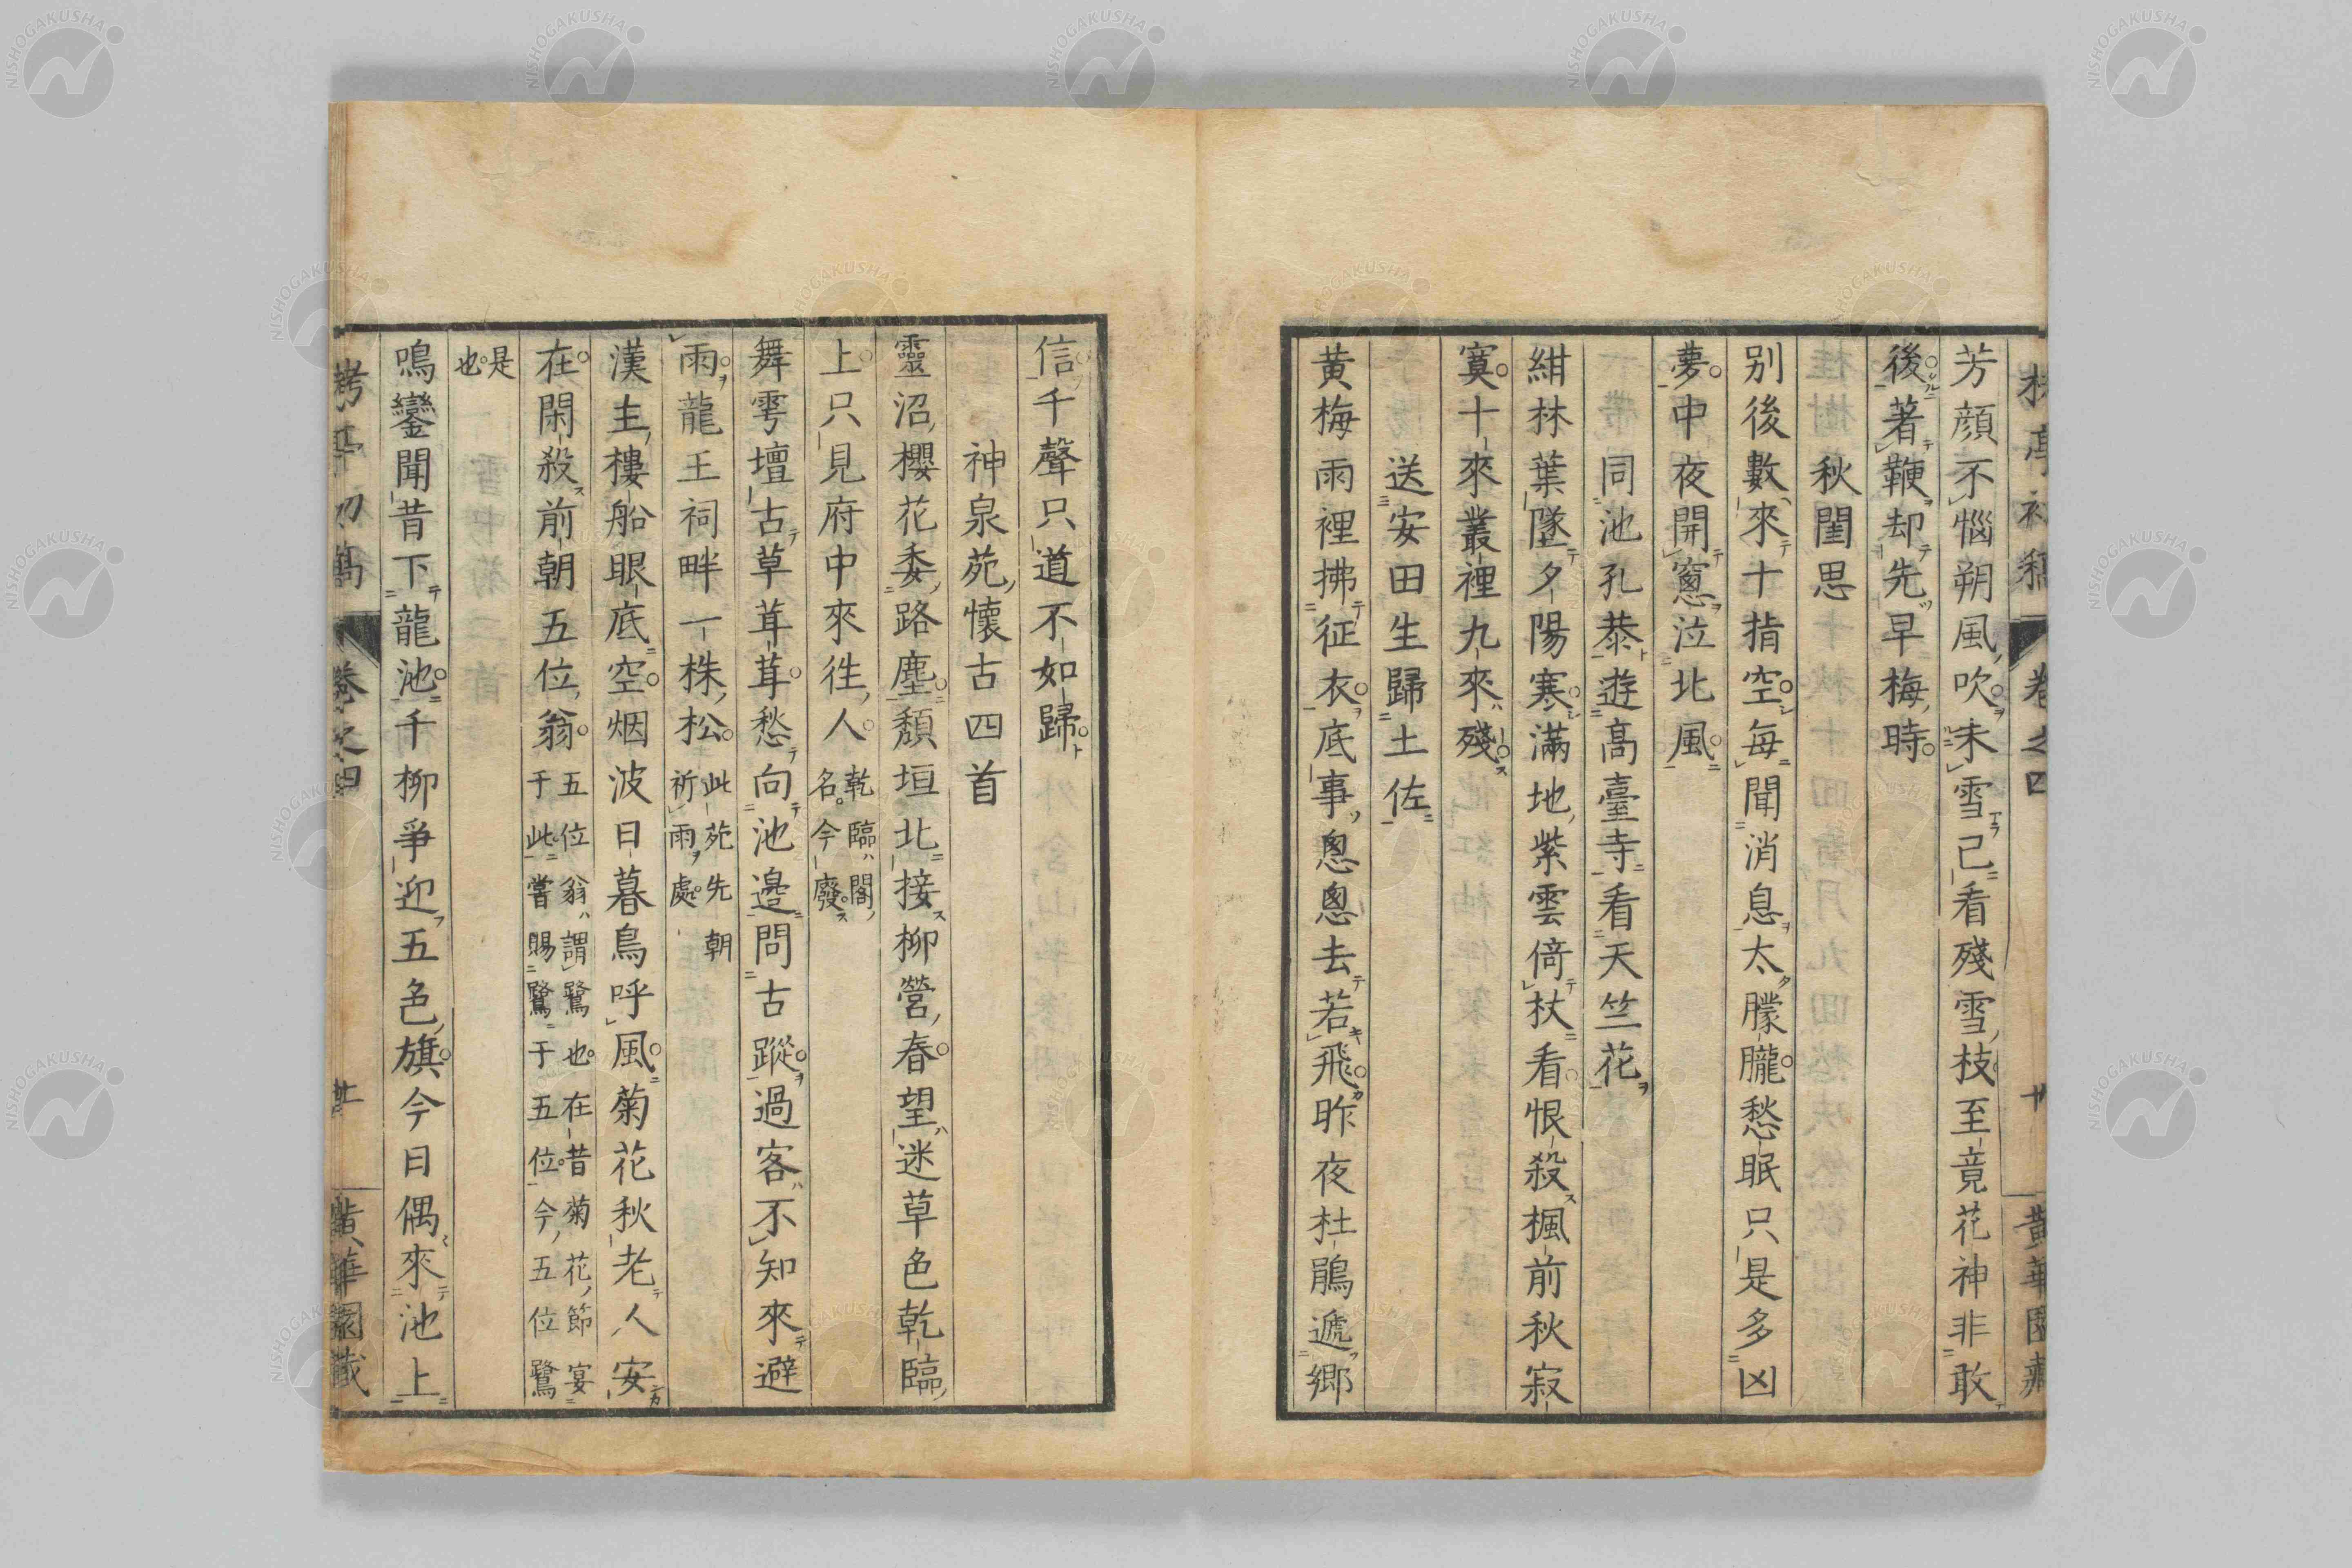 芳顔不惱朔風吹未雪已看殘雪枝至竟花神非敢
後著鞭却先早梅時
秋閨思
别後數來十指空每聞消息太朦朧愁眠只是多凶
夢中夜開窻泣北風
同池孔恭遊髙臺寺看天竺花
紺林葉墜夕陽寒滿地紫雲倚杖看恨殺楓前秋寂
寞十來叢裡九來殘
送安田生歸土佐
黄梅雨裡拂征衣底事悤悤去若飛昨夜杜鵑遞鄉
信千聲只道不如歸
神泉苑懷古四首
靈沼櫻花委路塵頽垣北接柳營春望迷草色乾臨
上只見府中來往人 乾臨閣名今廢
舞雩壇古草茸茸愁向池邊問古蹤過客不知來避
雨龍王祠畔一株松 此苑先朝祈雨處
漢主樓船眼底空烟波日暮鳥呼風菊花秋老人安
在閑殺前朝五位翁 五位翁謂鷺也在昔菊花節宴于此嘗賜鷺于五位今五位鷺
是也
鳴鑾聞昔下龍池千柳爭迎五色旗今日偶來池上
卷之四
黄華園藏
NISHOGAKUSHA